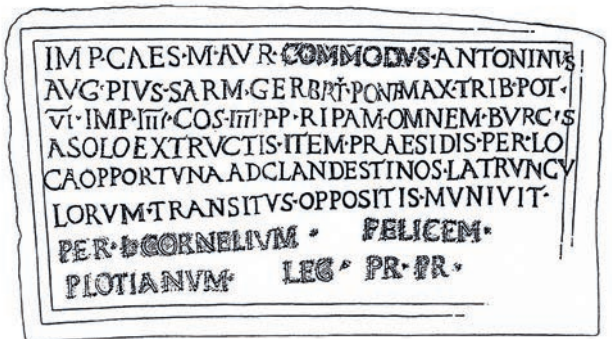 IMP·CAES·M·AVR·COMMODVS·ANTONINVS
AVG·PIVS·SARM·GER·BRIT·PONT·MAX·TRIB·POT·
VI·IMP·IIII·COS·IIII·P·P·RIPAM·OMNEM·BVRGIS
ASOLOEXTRVCTIS·ITEM·PRAESIDIS·PER·LO
CAOPPORTVNAADCLANDESTINOS·LATRVNCV
LORVM·TRANSITVS·OPPOSITIS·MVNIVIT·
PER·L·CORNELIVM· FELICEM·
PLOTIANVM· LEG· PR·PR·